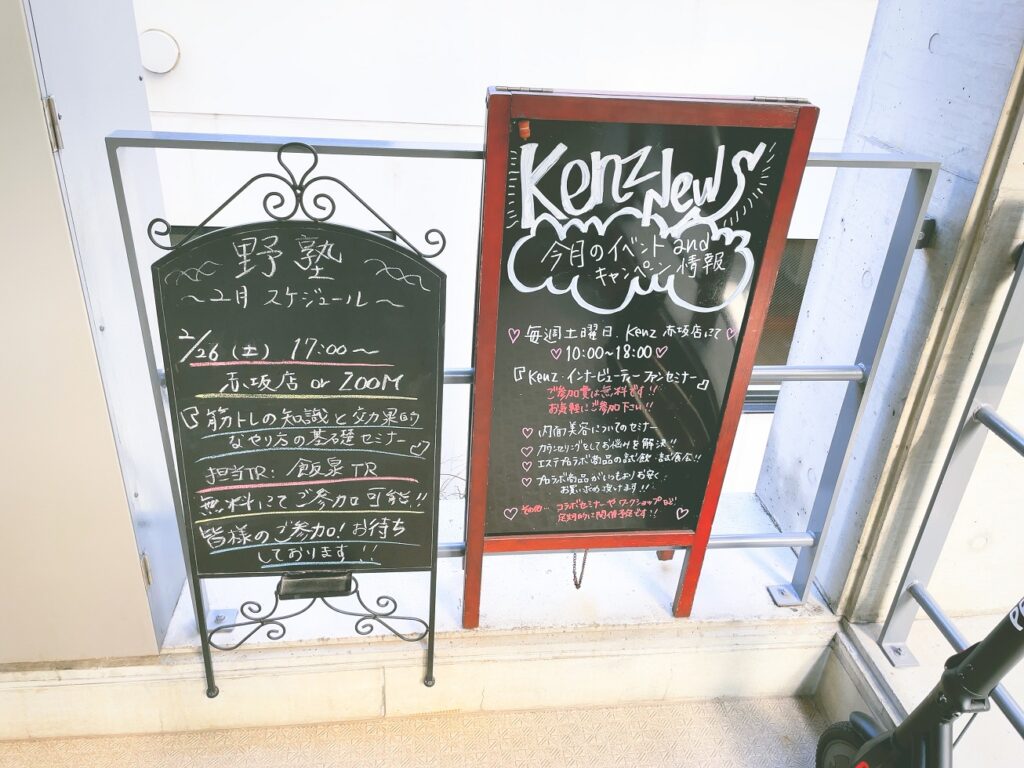 野塾
～2月 スケジュール～
2/26(土) 17:00～
赤坂店 or ZOOM
『筋トレの知識と効果的
なやり方の基礎セミナー』
担当TR: 飯泉TR
無料にてご参加可能!!
皆様のご参加!お待ち
しております!!
Kenz News
今月のイベント and
キャンペーン情報
毎週土曜日、Kenz 赤坂店にて
10:00~18:00
『Kenz・インナービューティーファンセミナー』
ご参加費は無料です!!
お気軽にご参加下さい!!
内面美容についてのセミナー
カウンセリングをしてお悩みを解決!!
エステプロラボ商品の試飲・試食会!!
プロラボ商品がいつもよりお安く
お買い求め頂けます!!
その他… コラボセミナーやワークショップなど
定期的に開催予定です!!